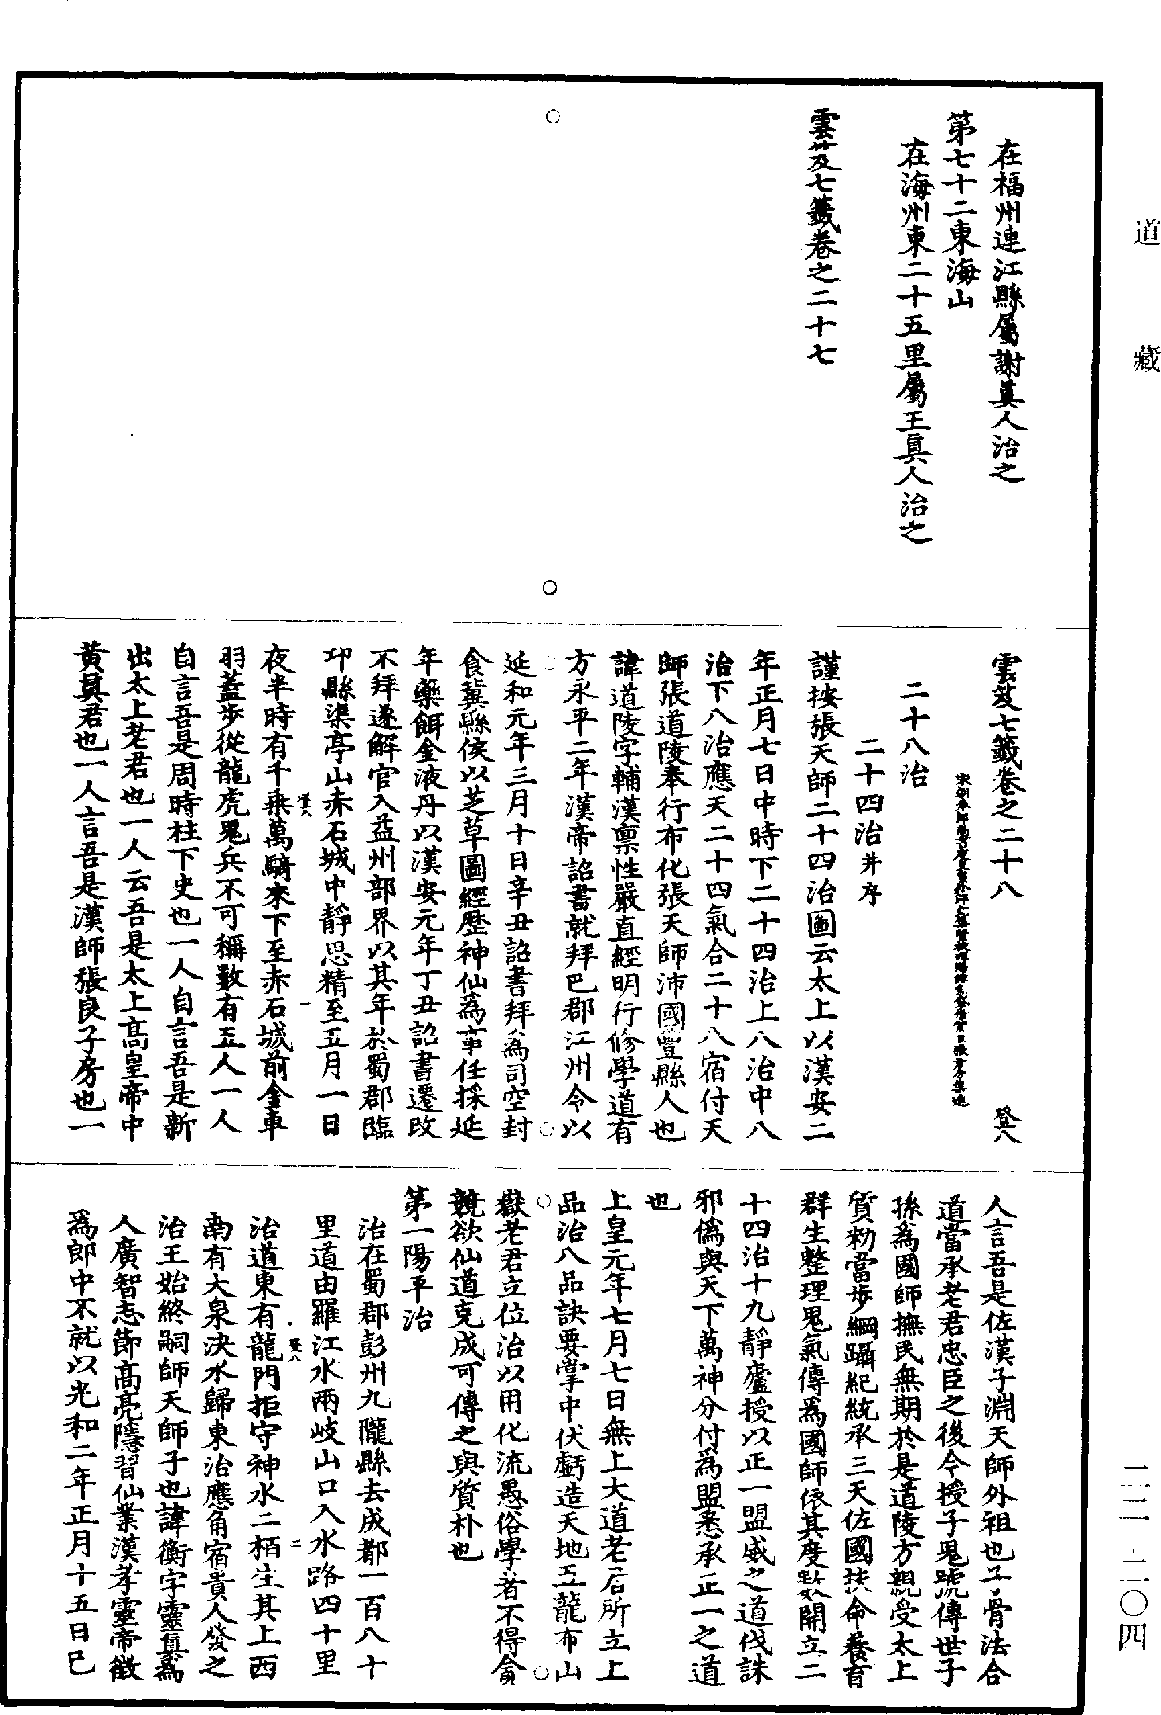 道藏
在福州連江縣屬謝真人治之
第七十二東海山
在海州東二十五里屬王真人治之
雲笈七籤卷之二十七
雲笈七籤卷之二十八
二十八治
二十四治并序
謹按張天師二十四治圖云太上以漢安二
年正月七日中時下二十四治上八治中八
治下八治應天二十四氣合二十八宿付天
師張道陵奉行布化張天師沛國豐縣人也
諱道陵字輔漢禀性嚴直經明行修學道有
方永平二年漢帝詔書就拜巴郡江州令以
延和元年三月十日辛丑詔書拜為司空封
食冀縣侯以芝草圖經歷神仙為事任採延
年藥餌金液丹以漢安元年丁丑詔書遷改
不拜遂解官入益州部界以其年於蜀郡臨
邛縣渠亭山赤石城中靜思精至五月一日
夜半時有千乘萬騎來下至赤石城前金車
羽蓋步從龍虎鬼兵不可稱數有五人一人
自言吾是周時柱下史也一人自言吾是新
出太上老君也一人云吾是太上高皇帝中
黃真君也一人言吾是漢師張良子房也一
人言吾是佐漢子淵天師外祖也子骨法合
道當承老君忠臣之後今授子鬼號傳世子
孫為國師撫民無期於是道陵方親受太上
質勑當步綱躡紀統承三天佐國扶命養育
群生整理鬼氣傳為國師依其度數開立二
十四治十九靜廬授以正一盟威之道伐誅
邪偽與天下萬神分付為盟悉承正一之道
也
上皇元年七月七日無上大道老君所立上
品治八品訣要掌中伏虧造天地五龍布山
嶽老君立位治以用化流愚俗學者不得貪
競欲仙道克成可傳之與質朴也
第一陽平治
治在蜀郡彭州九隴縣去成都一百八十
里道由羅江水兩岐山口入水路四十里
治道東有龍門拒守神水二栢生其上西
南有大泉決水歸東治應角宿貴人發之
治王始終嗣師天師子也諱衡字靈真為
人廣智志節高亮隱習仙業漢孝靈帝徵
為郎中不就以光和二年正月十五日已
二二-二〇四